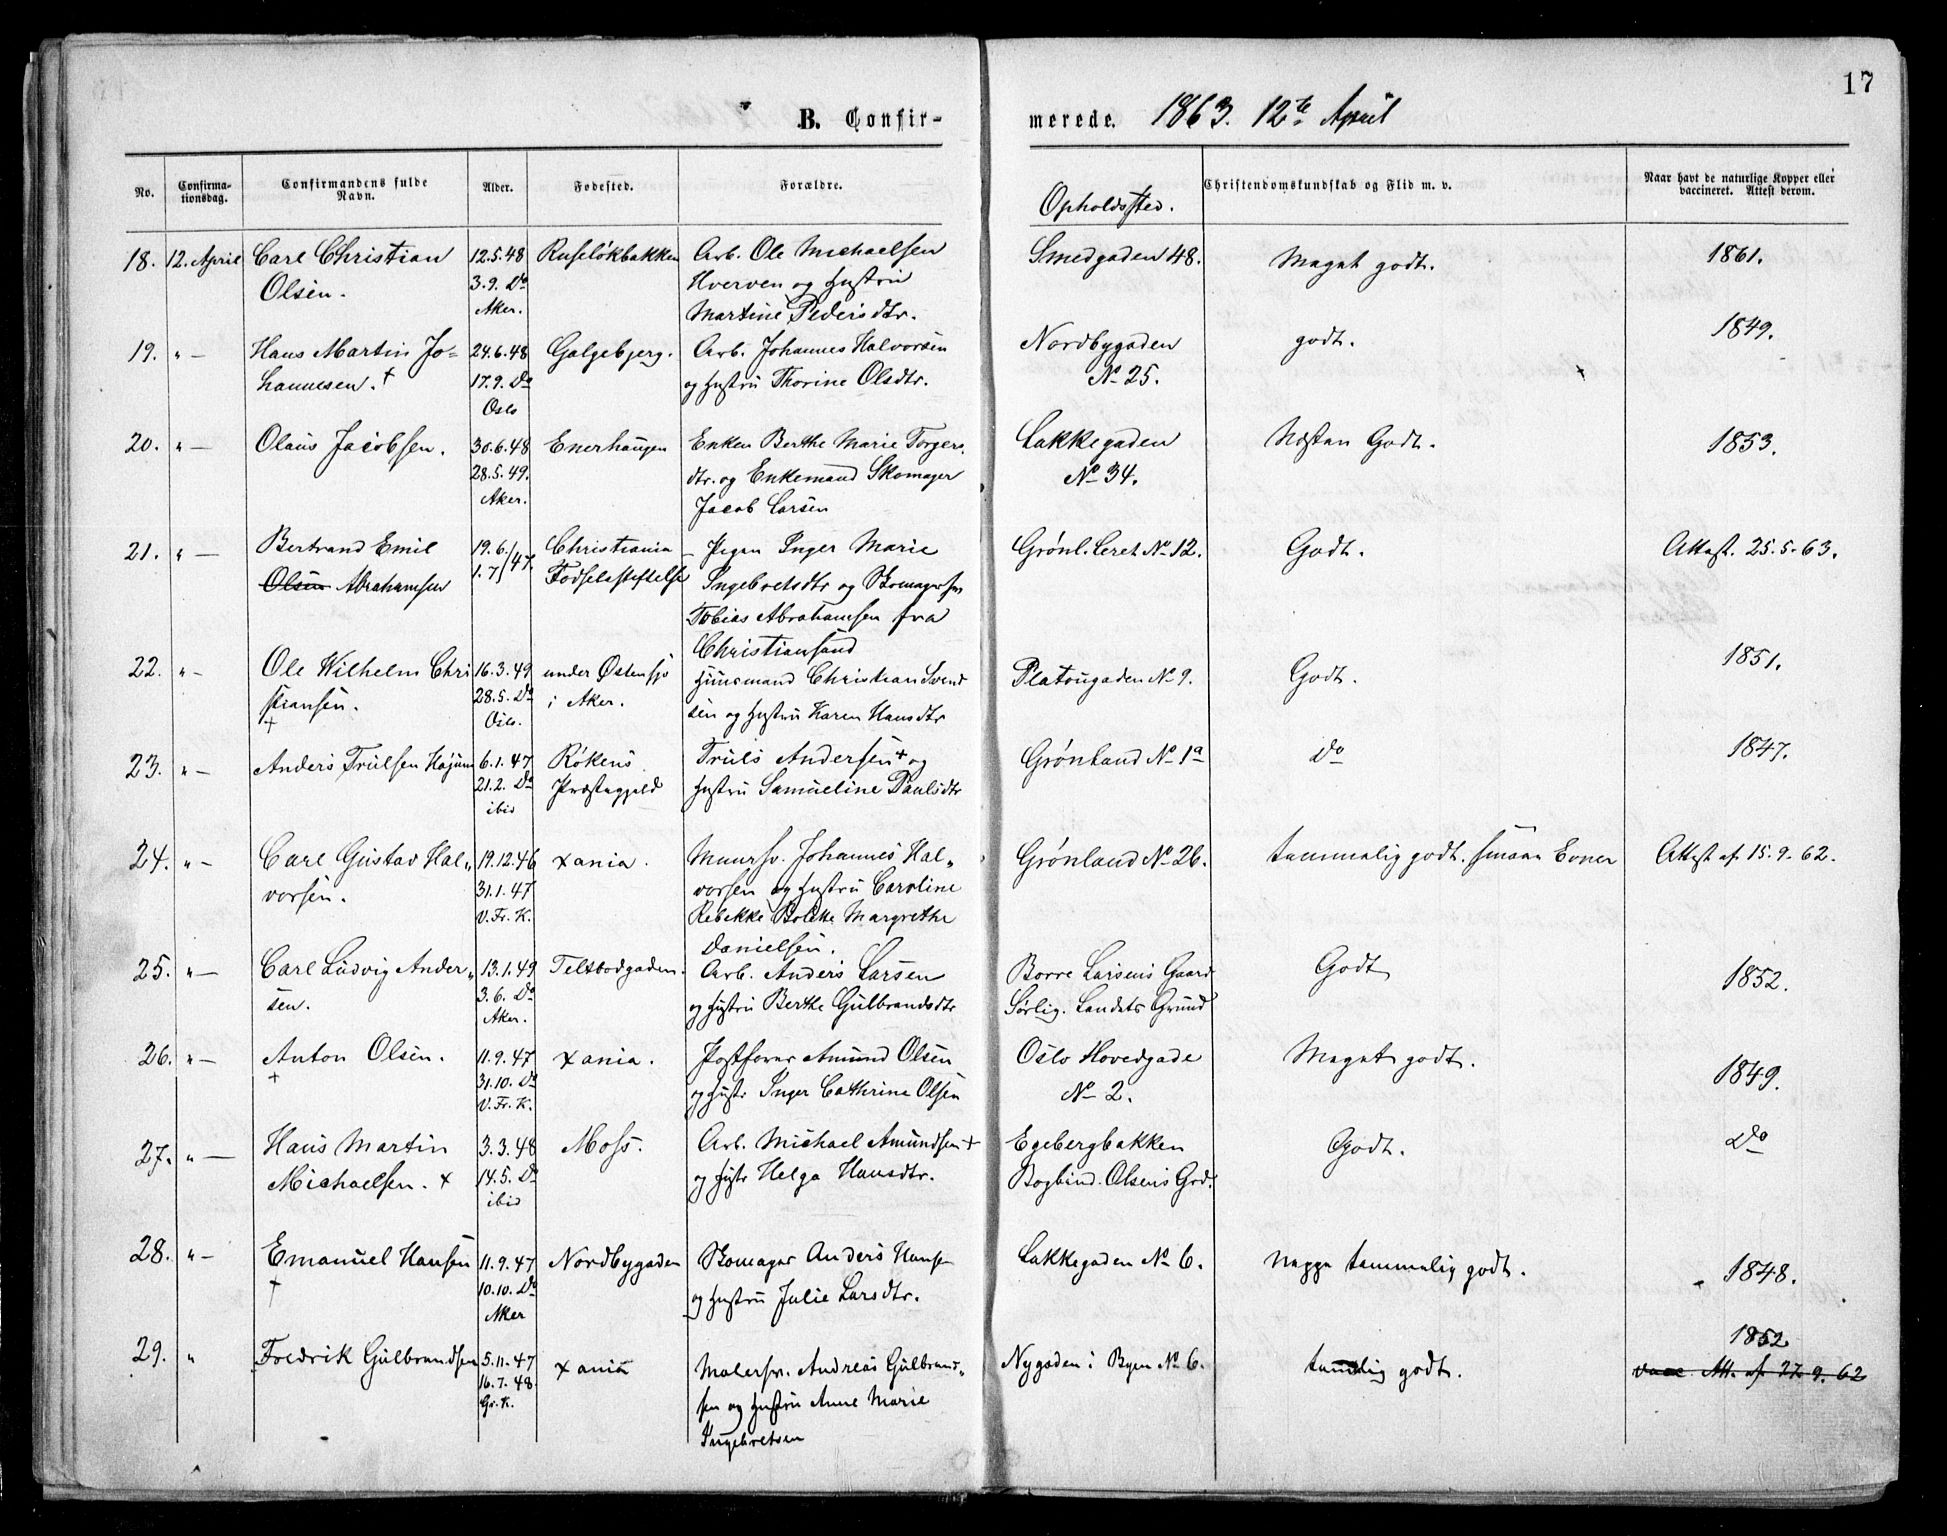 17
B. Confir-
merede. 1863. 12te April
No.
Confirma-
tionsdag.
Confirmandens fulde
Navn.
Alder.
Fødested.
Forældre.
Opholdssted.
Christendomskundskab og Flid m. v.
Naar havt de naturlige Kopper eller
vaccineret. Attest derom.
18. 12. April Carl Christian 12.5.48 Ruseløkbakken Arb. Ole Michaelsen Smedgaden 48. Meget godt. 1861.
Olsen. 3.9. Do Hverven og Hustru
Aker. Martine Pedersdtr.
19. " — Hans Martin Jo= 24.6.48 Galgebjerg. Arb. Johannes Halvorsen Nordbygaden godt. 1849.
hannesen. + 17.9. Do og Hustru Thorine Olsdtr. No 25.
Oslo
20. " — Olaus Jacobsen. 30.6.48 Enerhaugen Enken Berthe Marie Torgers Lakkegaden Næsten Godt. 1853.
28.5.49. dtr. og Enkemand Skomager No 34.
Aker. Jacob Larsen
21. " — Bertrand Emil 19.6./47. Christiania Pigen Inger Marie Grønl. Leret No 12. Godt. Attest. 25.5.63.
Olsen Abrahamsen 1.7 Fødselsstiftelse Ingebretsdtr og Skomagersv
Tobias Abrahamsen fra
Christiansand
22. " — Ole Wilhelm Chri 16.3.49 under Østensjø Huusmand Christian Svend Platougaden No 9. Godt. 1851.
stiansen. 28.5. Do i Aker. sen og Hustru Karen Hansdtr
+ Oslo.
23. " — Anders Trulsen Højum 6.1.47 Røkens Truls Andersen + og Grønland No 1a Do 1847.
21.2. Do Præstegjeld Hustru Samueline Paulsdtr
ibid
24. " — Carl Gustav Hal„ 19.12.46 Xania. Muursv. Johannes Hal„ Grønland No 26. temmelig godt. smaae Evner Attest af 15.9.62.
vorsen. 31.1.47 vorsen og Hustru Caroline
V. Fr. K. Rebekke Bolette Margrethe
Danielsen.
25. " — Carl Ludvig Ander„ 13.1.49 Teltbodgaden. Arb. Anders Larsen Borre Larsens Gaard Godt 1852.
sen. 3.6. Do og Hustru Berthe Gulbrandsdtr Sørlig. Landets Grund
Aker.
26. " — Anton Olsen. 11.9.47 Xania. Postfører Amund Olsen Oslo Hovedgade Meget godt. 1849.
+ 31.10. Do og Hustr Inger Cathrine Olsen No 2.
V. Fr. K.
27. " — Hans Martin 3.3.48 Moss. Arb. Michael Amundsen + Egebergbakken Godt. Do
Michaelsen. + 14.5. Do og Hustr Helga Hansdtr. Bogbind. Olsens Grd.
ibid
28. " — Emanuel Hansen 11.9.47 Nordbygaden Skomager Anders Hansen Lakkegaden No 6. Neppe temmelig godt. 1848.
+ 10.10. Do og Hustru Julie Larsdtr.
Aker
29. " Fredrik Gulbrandsen 5.11.47 Xania Malersv. Andreas Gulbrand„ Nygaden i Byen No 6. temlig godt. 1852
16.7.48. sen og Hustru Anne Marie vacc. Att. af 27.9.62
Gr. K. Ingebretsen